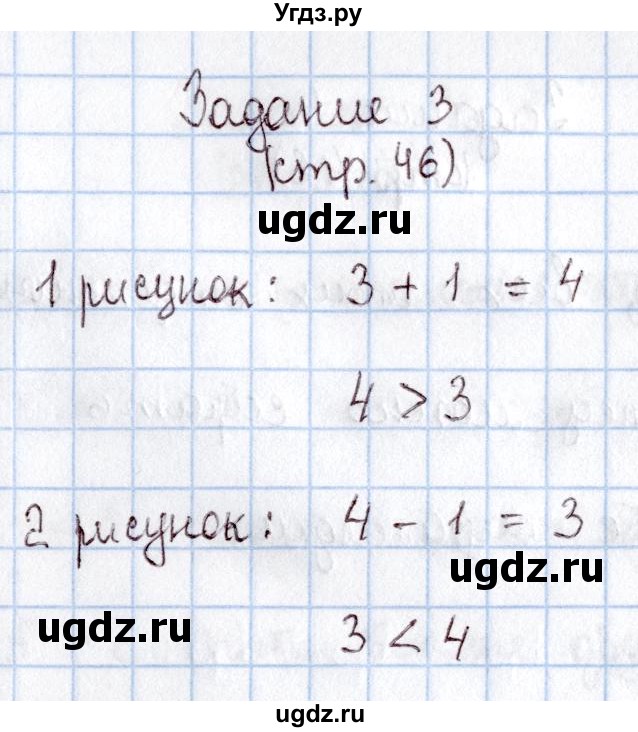 Угдз.ру
Задание 3
(стр. 46)
ugdz.ru
1 рисунок: 3 + 1 = 4
4 > 3
2 рисунок: 4 - 1 = 3
ugdz.ru
ugdz.ru
3 < 4
ugdz.ru